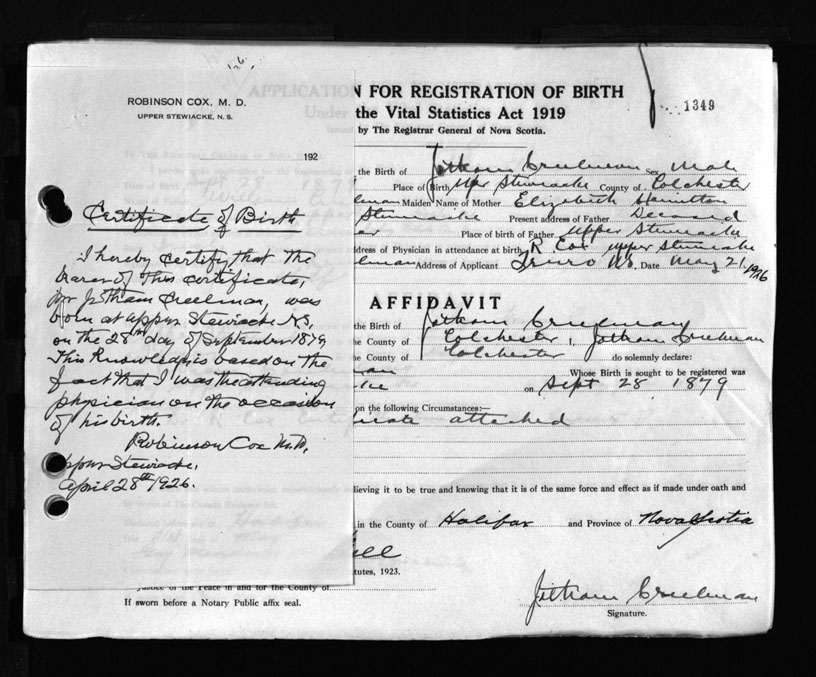 ROBINSON COX, M. D.
UPPER STEWIACKE, N. S.
192
Certificate of Birth
I hereby certify that the
bearer of this certificate,
Mr Jotham Creelman, was
born at Upper Stewiacke N.S,
on the 28th day of September 1879
This Knowledge is based on the
fact that I was the attending
physician on the occasion
of his birth.
Robinson Cox M.D,
Upper Stewiacke,
April 28th 1926.
N FOR REGISTRATION OF BIRTH
the Vital Statistics Act 1919
by The Registrar General of Nova Scotia.
1349
the Birth of Jotham Creelman Sex Male
Place of Birth Upr Stewiacke County of Colchester
lman Maiden Name of Mother Elizabeth Hamilton
Stewiacke Present address of Father Deceased
Place of birth of Father Upper Stewiacke
ddress of Physician in attendance at birth R Cox upper Stewiacke
elman Address of Applicant Truro N.S. Date May 21, 1926
AFFIDAVIT
the Birth of Jotham Creelman
the County of Colchester I, Jotham Creelman
the County of Colchester do solemnly declare:
Whose Birth is sought to be registered was
on Sept 28 1879
on the following Circumstances:—
icate attached
lieving it to be true and knowing that it is of the same force and effect as if made under oath and
in the County of Halifax and Province of Nova Scotia
ell
tutes, 1923.
Justice of the Peace in and for the County of
If sworn before a Notary Public affix seal.
Jotham Creelman
Signature.